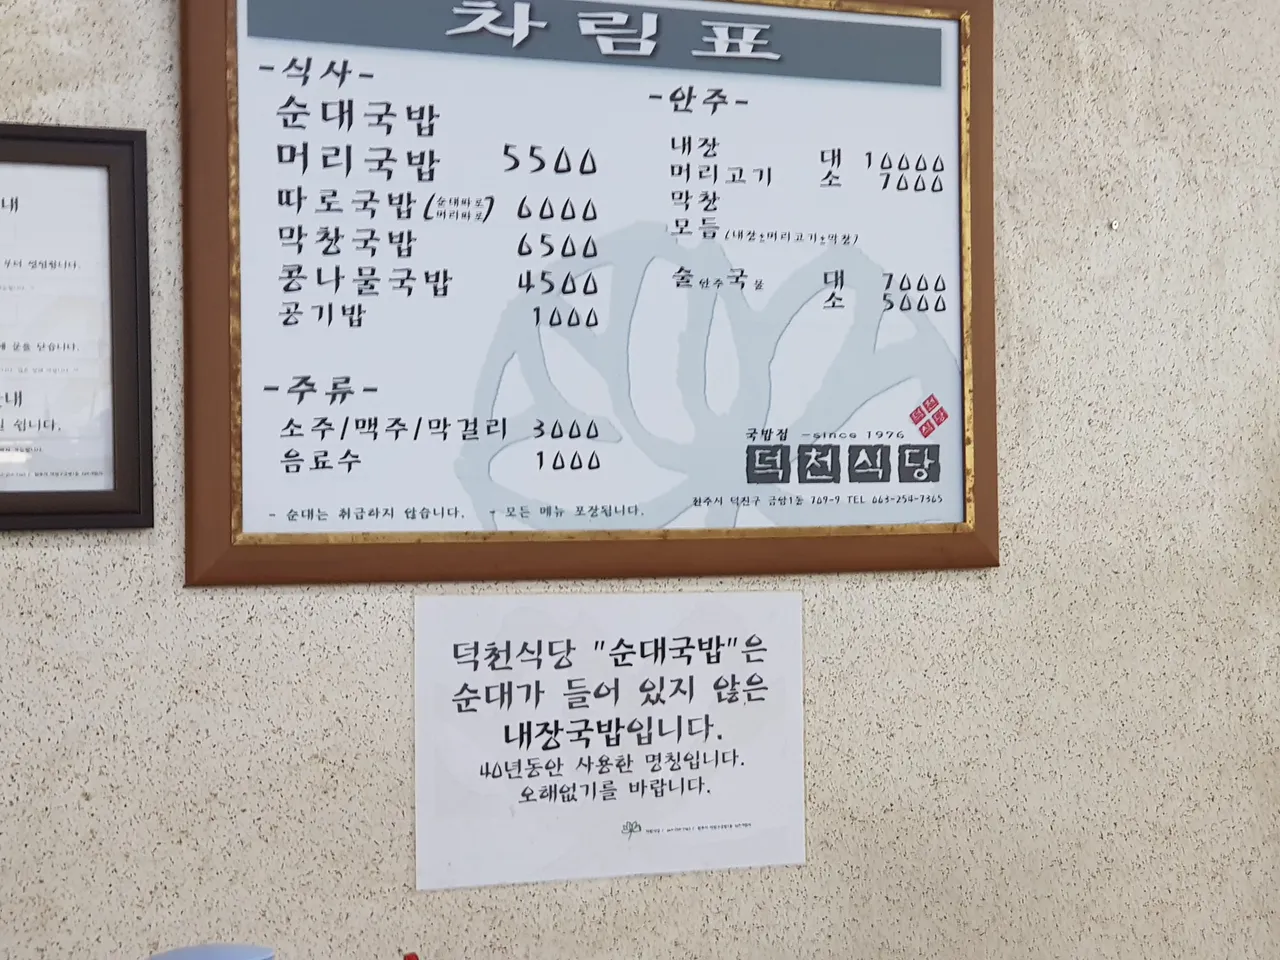 차림표
-식사-
순대국밥
머리국밥 5500
따로국밥(순대따로 머리따로) 6000
막창국밥 6500
콩나물국밥 4500
공기밥 1000
-주류-
소주/맥주/막걸리 3000
음료수 1000
- 순대는 취급하지 않습니다. - 모든 메뉴 포장됩니다.
-안주-
내장 대 10000
머리고기 소 7000
막창
모듬(내장+머리고기+막창)
술안주국물 대 7000
소 5000
덕천식당
국밥집 -since 1976
덕천식당
전주시 덕진구 금암1동 769-9 TEL 063-254-7365
덕천식당 "순대국밥"은
순대가 들어 있지 않은
내장국밥입니다.
40년동안 사용한 명칭입니다.
오해없기를 바랍니다.
내
부터 영업됩니다.
에 문을 닫습니다.
내
쉽니다.